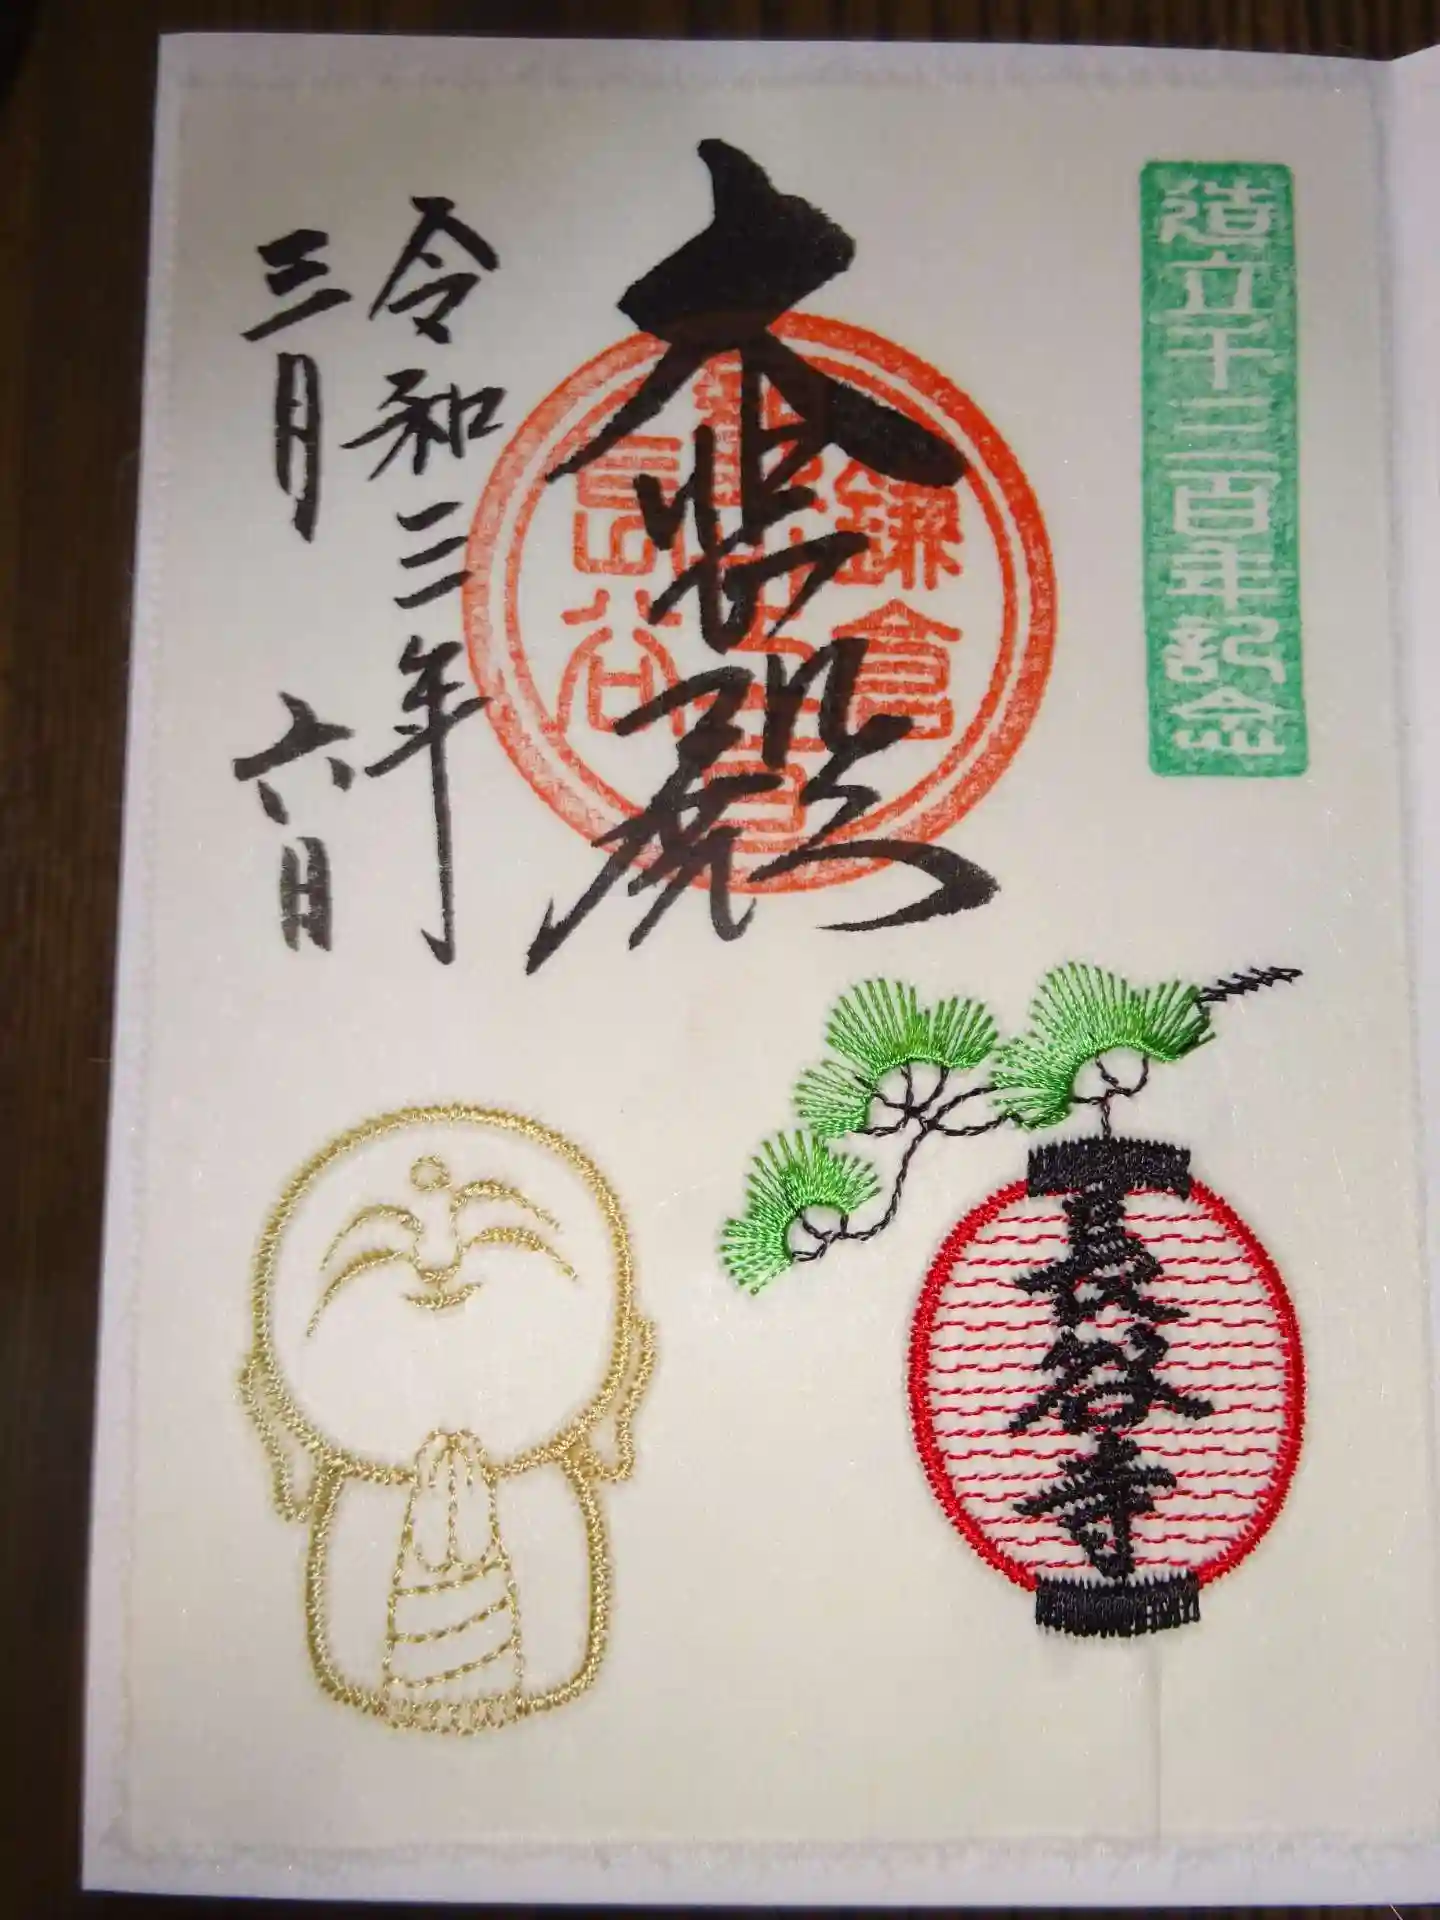 造立千三百年記念
大悲殿
鎌倉
長谷
令和三年
三月 六日
長谷寺